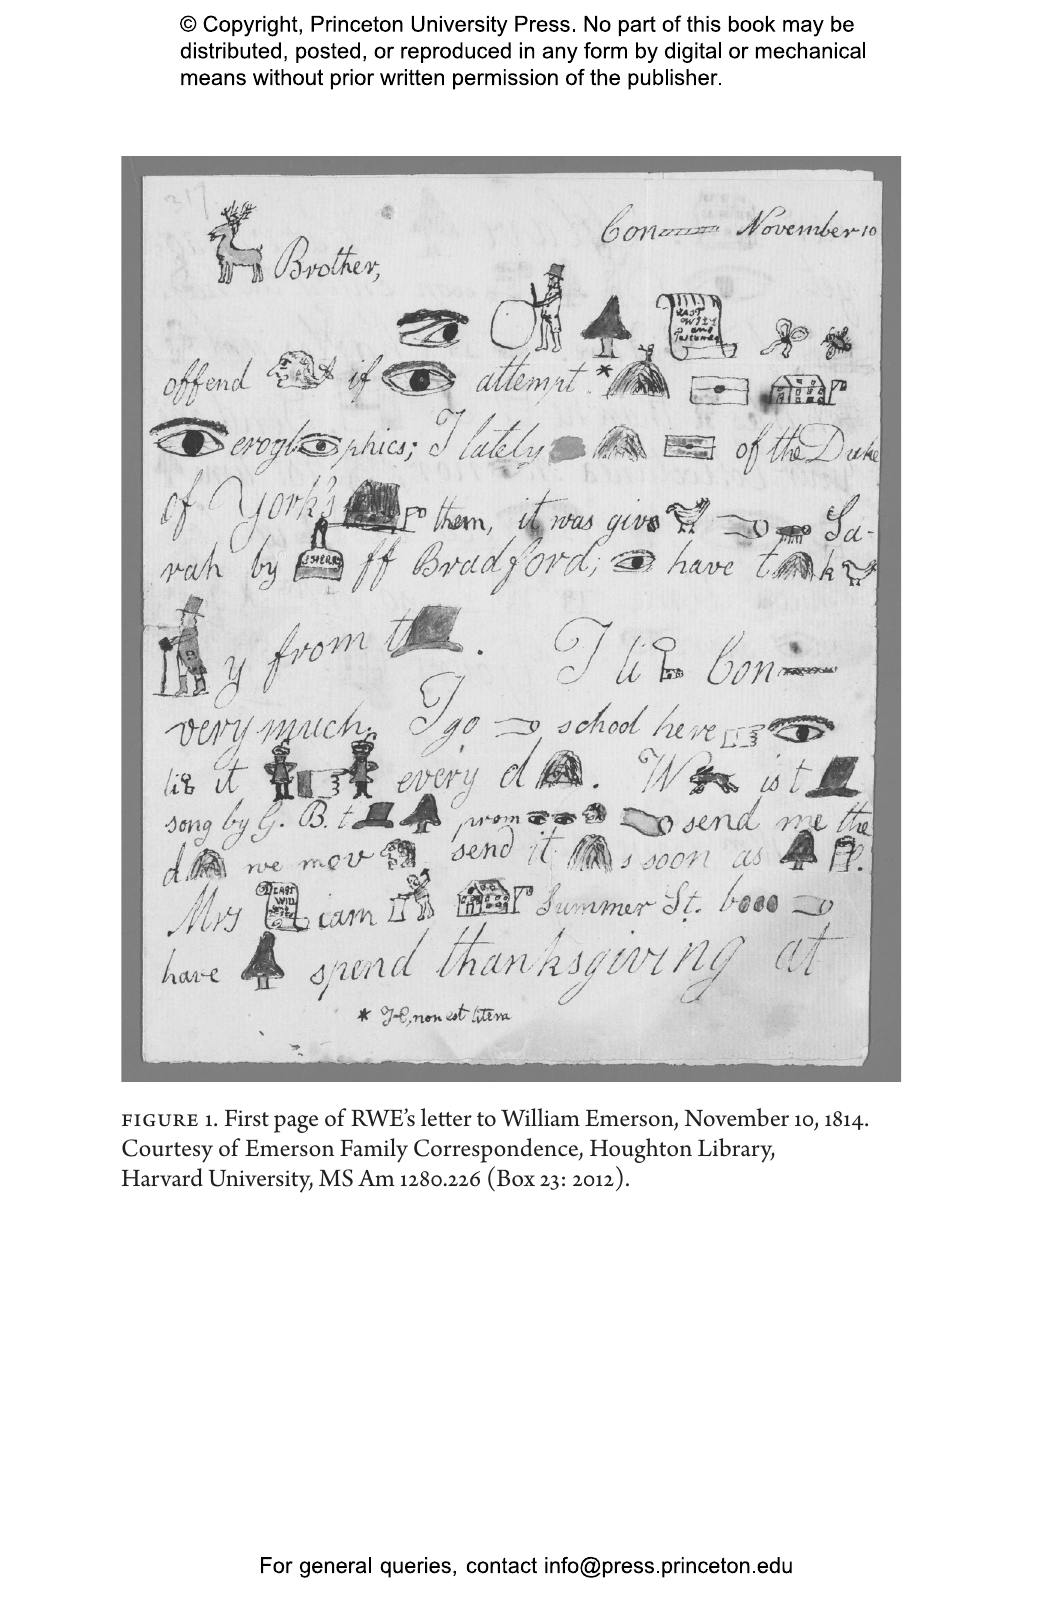 © Copyright, Princeton University Press. No part of this book may be
distributed, posted, or reproduced in any form by digital or mechanical
means without prior written permission of the publisher.
Con November 10
Brother,
LAST WILL and Testament
offend if attempt *
eroglyphics; I lately of the Duke
of York's them, it was give Sa-
rah by ff Bradford; have t k
y from t .
I li Con
very much. I go school here
li it every d . W is t
song by G. B. t prom send me the
d we mov send it s soon as
Mrs LAST WILL iam Summer St. b
have spend thanksgiving at
* H, non est litera
FIGURE 1. First page of RWE’s letter to William Emerson, November 10, 1814.
Courtesy of Emerson Family Correspondence, Houghton Library,
Harvard University, MS Am 1280.226 (Box 23: 2012).
For general queries, contact info@press.princeton.edu